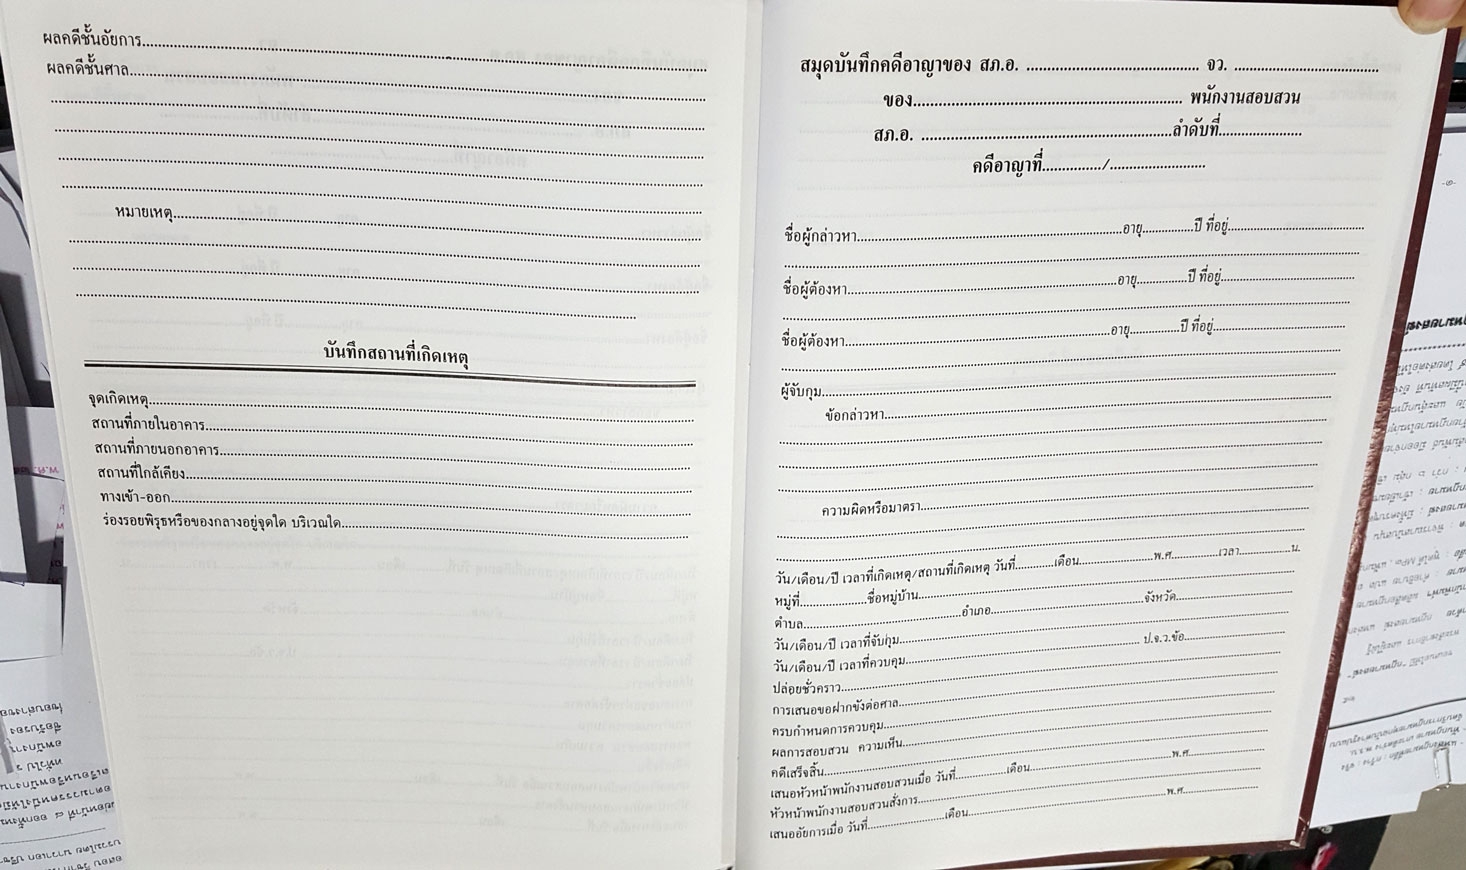 ผลคดีชั้นอัยการ
ผลคดีชั้นศาล
หมายเหตุ
บันทึกสถานที่เกิดเหตุ
จุดเกิดเหตุ
สถานที่ภายในอาคาร
สถานที่ภายนอกอาคาร
สถานที่ใกล้เคียง
ทางเข้า-ออก
ร่องรอยพิรุธหรือของกลางอยู่จุดใด บริเวณใด
สมุดบันทึกคดีอาญาของ สภ.อ. จว.
ของ พนักงานสอบสวน
สภ.อ. ลำดับที่
คดีอาญาที่ /
ชื่อผู้กล่าวหา อายุ ปี ที่อยู่
ชื่อผู้ต้องหา อายุ ปี ที่อยู่
ชื่อผู้ต้องหา อายุ ปี ที่อยู่
ผู้จับกุม
ข้อกล่าวหา
ความผิดหรือมาตรา
วัน/เดือน/ปี เวลาที่เกิดเหตุ/สถานที่เกิดเหตุ วันที่ เดือน พ.ศ. เวลา น.
หมู่ที่ ชื่อหมู่บ้าน
ตำบล อำเภอ จังหวัด
วัน/เดือน/ปี เวลาที่จับกุม
วัน/เดือน/ปี เวลาที่ควบคุม ป.จ.ว.ข้อ
ปล่อยชั่วคราว
การเสนอขอฝากขังต่อศาล
ครบกำหนดการควบคุม
ผลการสอบสวน ความเห็น
คดีเสร็จสิ้น
เสนอหัวหน้าพนักงานสอบสวนเมื่อ วันที่ เดือน พ.ศ.
หัวหน้าพนักงานสอบสวนสั่งการ
เสนออัยการเมื่อ วันที่ เดือน พ.ศ.